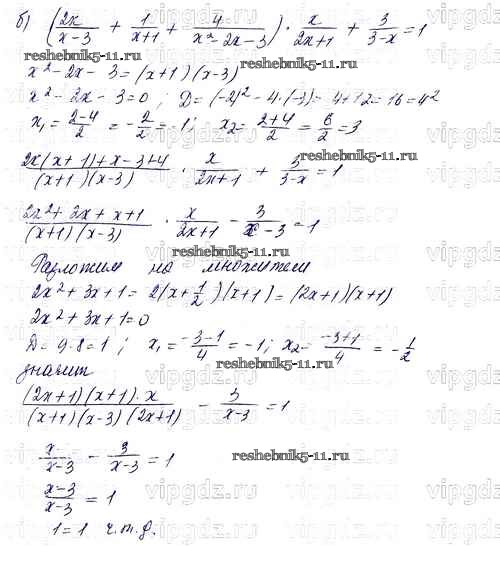 б) (2x/(x-3) + 1/(x+1) + 4/(x²-2x-3)) · x/(2x+1) + 3/(3-x) = 1
reshebnik5-11.ru
x² - 2x - 3 = (x+1)(x-3)
x² - 2x - 3 = 0; D = (-2)² - 4·(-3) = 4+12 = 16 = 4²
x₁ = (2-4)/2 = -2/2 = -1; x₂ = (2+4)/2 = 6/2 = 3
reshebnik5-11.ru
(2x(x+1)+x-3+4)/((x+1)(x-3)) · x/(2x+1) + 3/(3-x) = 1
(2x²+2x+x+1)/((x+1)(x-3)) · x/(2x+1) - 3/(x-3) = 1
reshebnik5-11.ru
Разложим на множители
2x²+3x+1 = 2(x+1/2)(x+1) = (2x+1)(x+1)
2x²+3x+1=0
D = 9-8=1; x₁ = (-3-1)/4 = -1; x₂ = (-3+1)/4 = -1/2
reshebnik5-11.ru
значит
((2x+1)(x+1)·x)/((x+1)(x-3)(2x+1)) - 3/(x-3) = 1
x/(x-3) - 3/(x-3) = 1
reshebnik5-11.ru
(x-3)/(x-3) = 1
1=1 ч.т.д.
vipgdz.ru